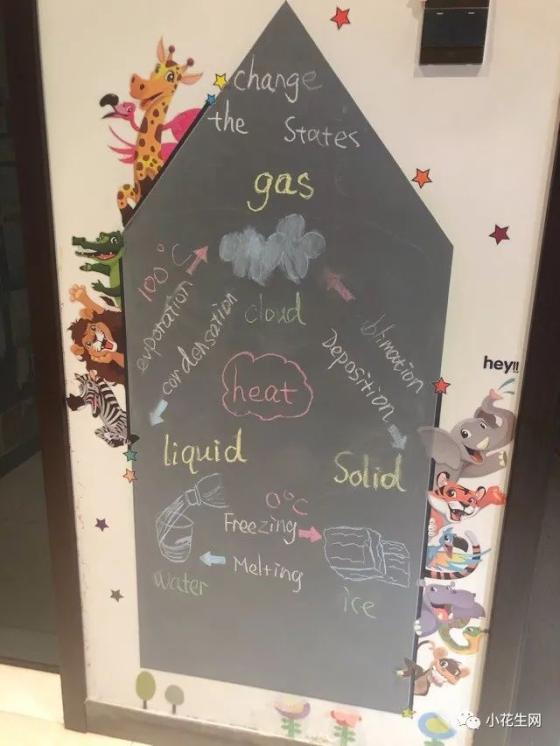 change
the States
gas
100°C
evporation
condensation
cloud
Deposition
heat
hey!!
liquid
Solid
0°C
Freezing
Melting
water
ice
小花生网